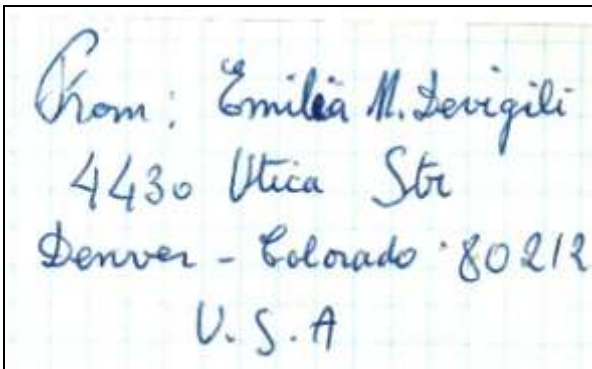 From: Emilia M. Devigili
4430 Utica Str
Denver - Colorado · 80212
U.S.A